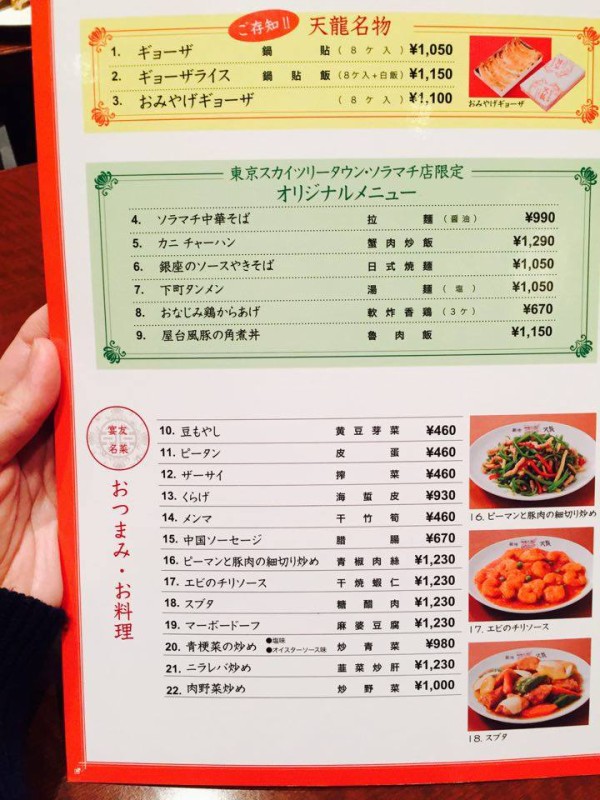 ご存知!! 天龍名物
1. ギョーザ 鍋貼 (8ケ入) ¥1,050
2. ギョーザライス 鍋貼飯 (8ケ入+白飯) ¥1,150
3. おみやげギョーザ (8ケ入) ¥1,100
おみやげギョーザ
東京スカイツリータウン・ソラマチ店限定
オリジナルメニュー
4. ソラマチ中華そば 拉麺 (醤油) ¥990
5. カニ チャーハン 蟹肉炒飯 ¥1,290
6. 銀座のソースやきそば 日式焼麺 ¥1,050
7. 下町タンメン 湯麺 (塩) ¥1,050
8. おなじみ鶏からあげ 軟炸香鶏 (3ケ) ¥670
9. 屋台風豚の角煮丼 魯肉飯 ¥1,150
宴友名菜
おつまみ・お料理
10. 豆もやし 黄豆芽菜 ¥460
11. ピータン 皮蛋 ¥460
12. ザーサイ 搾菜 ¥460
13. くらげ 海蜇皮 ¥930
14. メンマ 干竹筍 ¥460
15. 中国ソーセージ 腊腸 ¥670
16. ピーマンと豚肉の細切り炒め 青椒肉絲 ¥1,230
17. エビのチリソース 干焼蝦仁 ¥1,230
18. スブタ 糖醋肉 ¥1,230
19. マーボードーフ 麻婆豆腐 ¥1,230
20. 青梗菜の炒め ●塩味 ●オイスターソース味 炒青菜 ¥980
21. ニラレバ炒め 韮菜炒肝 ¥1,230
22. 肉野菜炒め 炒野菜 ¥1,000
16. ピーマンと豚肉の細切り炒め
17. エビのチリソース
18. スブタ